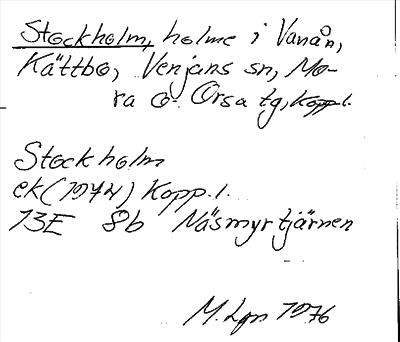 Stockholm, holme i Vanån,
Kättbo, Venjans sn, Mo-
ra o. Orsa tg, Kopp.l.
Stockholm
ek (1974) Kopp.l.
13E 8b Näsmyrtjärnen
M. Lgn 1976